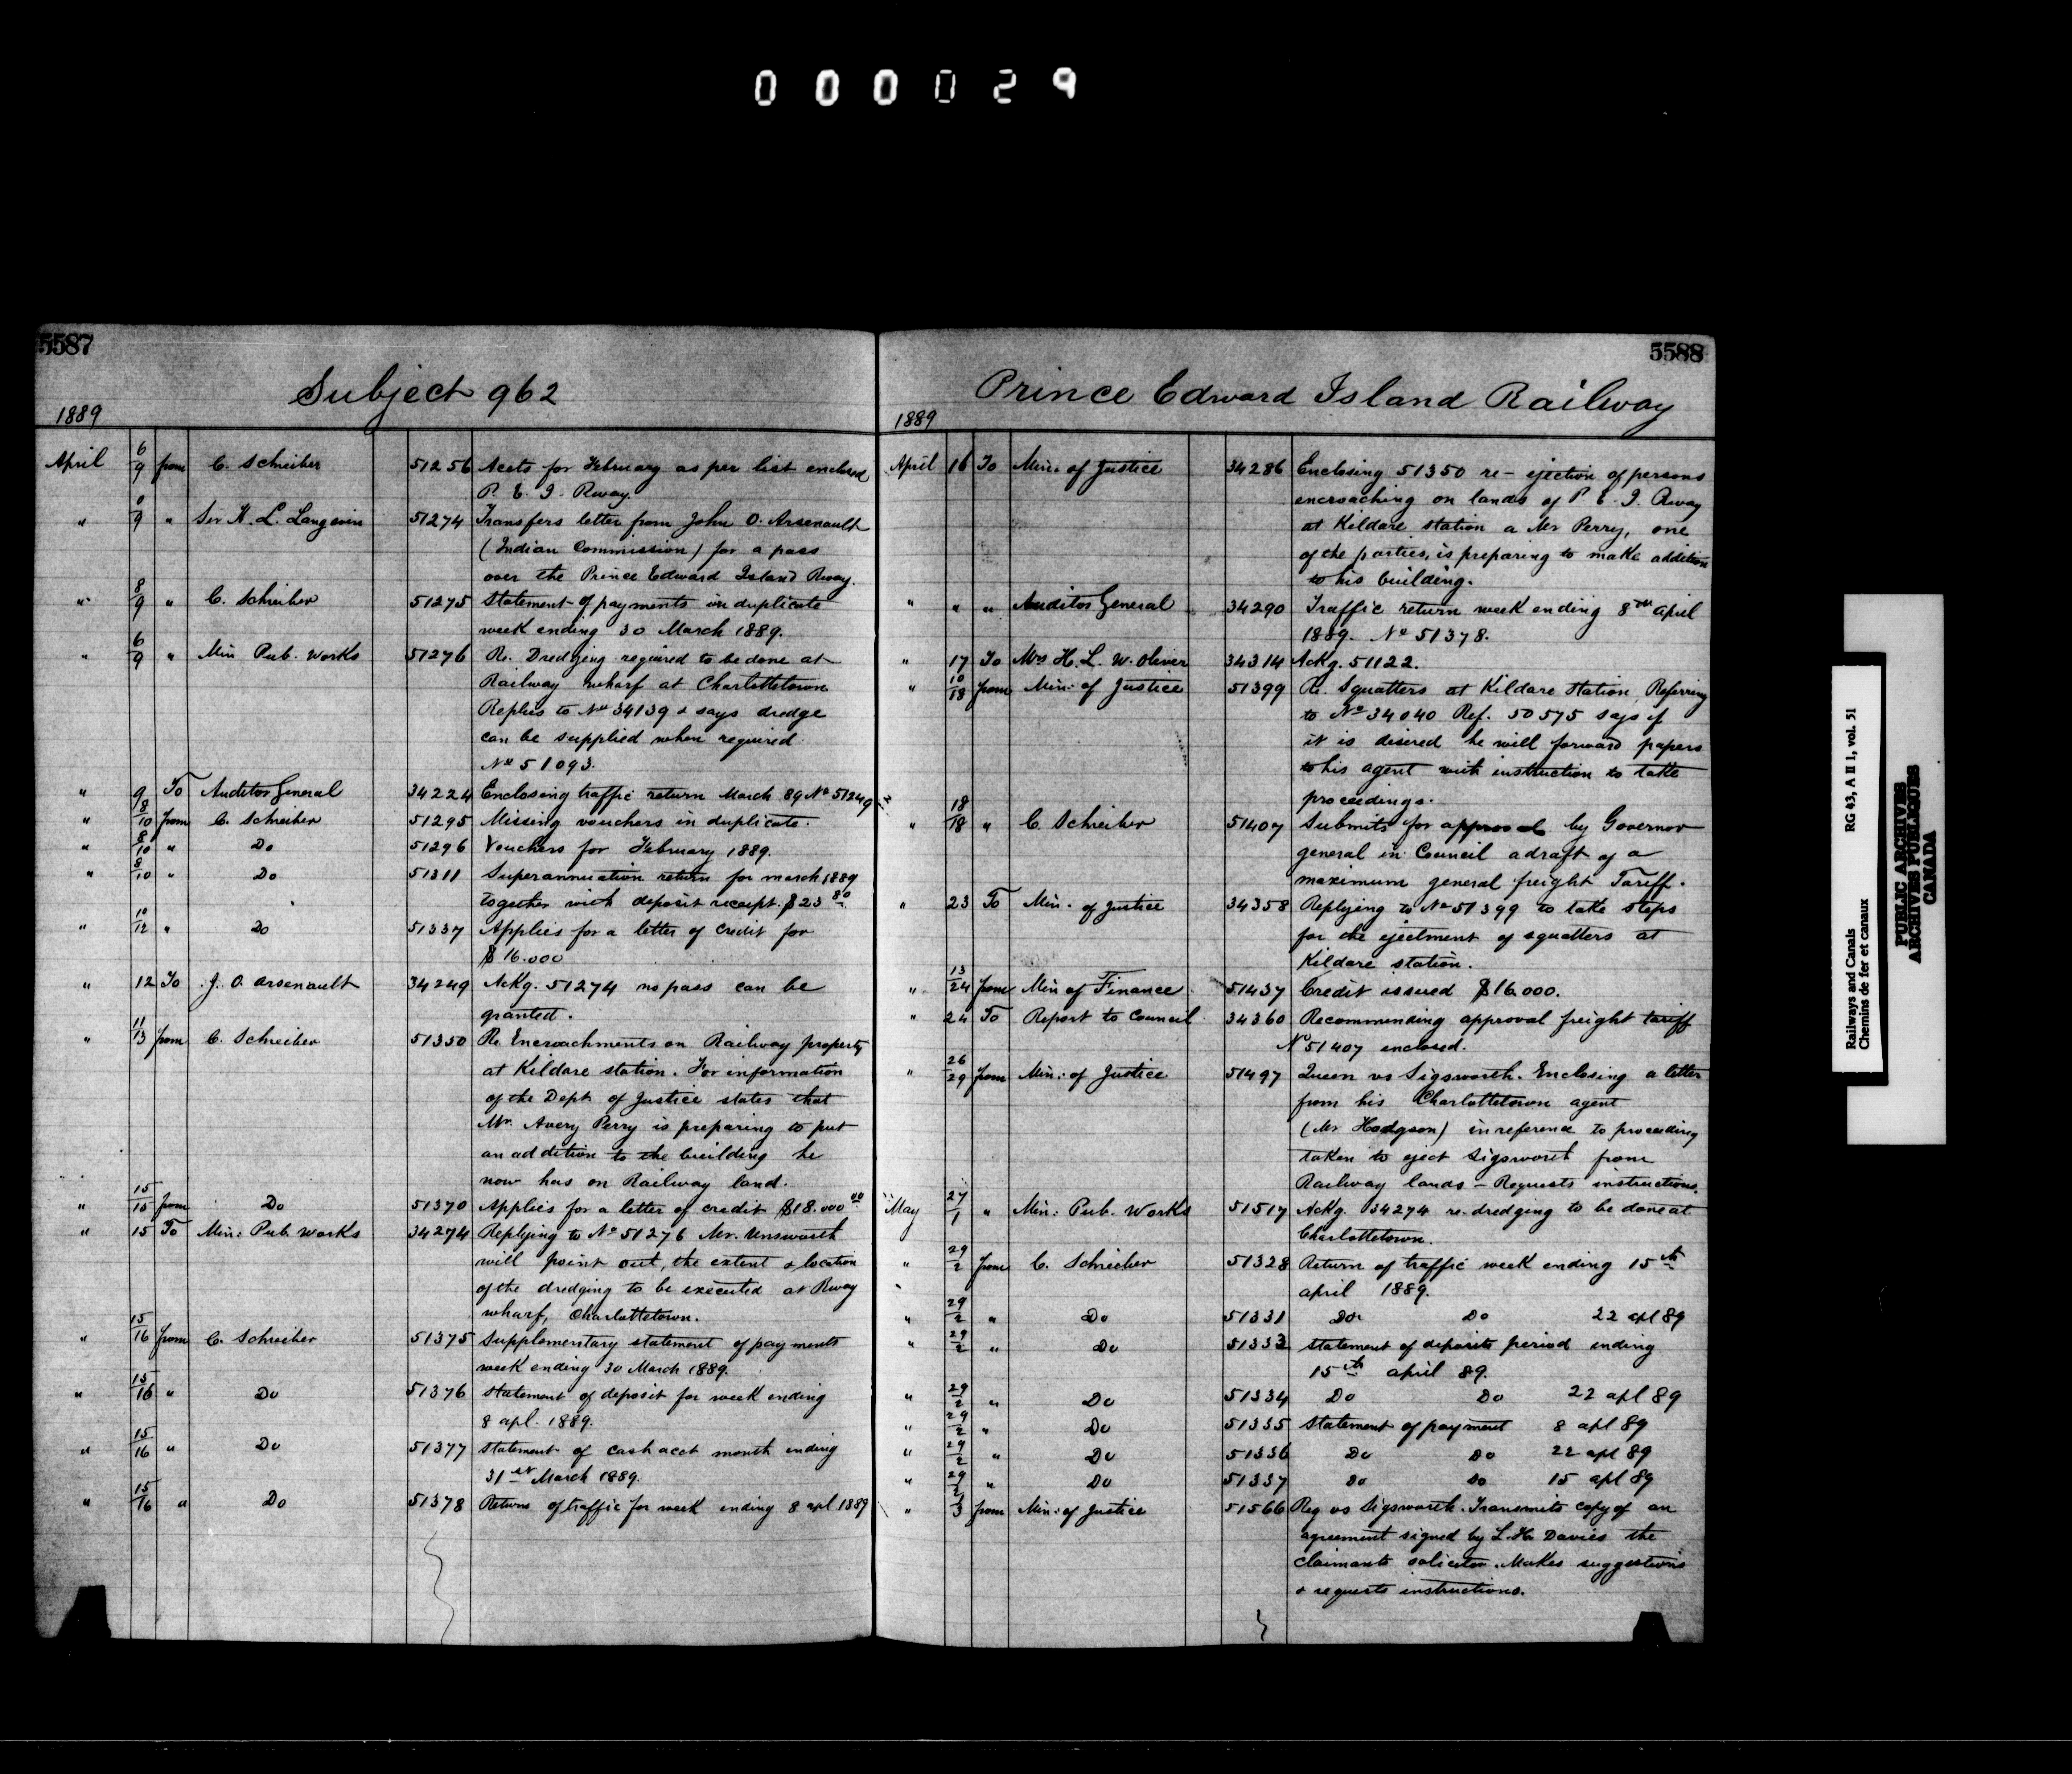 000029
5587
Subject 962
1889
April 6/9 from C. Schreiber 51256 Accts for February as per list enclosed
P. E. I. Rway.
" 8/9 " Sir H. L. Langevin 51274 Transfers letter from John O. Arsenault
(Indian Commission) for a pass
over the Prince Edward Island Rway.
" 8/9 " C. Schreiber 51275 Statement of payments in duplicate
week ending 30 March 1889.
" 6/9 " Min Pub. Works 51276 Re. Dredging required to be done at
Railway wharf at Charlottetown
Replies to No 34139 & says dredge
can be supplied when required
No 51093.
" 9 To Auditor General 34224 Enclosing traffic return March 89 No 51249
" 8/10 from C. Schreiber 51295 Missing vouchers in duplicate.
" 8/10 " Do 51296 Vouchers for February 1889.
" 8/10 " Do 51311 Superannuation return for march 1889
together with deposit receipt. $23 80
" 10/12 " Do 51337 Applies for a letter of credit for
$16.000
" 12 To J. O. Arsenault 34249 Ackg. 51274 no pass can be
granted.
" 11/13 from C. Schreiber 51350 Re Encroachments on Railway property
at Kildare station. For information
of the Dept. of Justice states that
Mr. Avery Perry is preparing to put
an addition to the building he
now has on Railway land.
" 15/15 from Do 51370 Applies for a letter of credit $18.000 00
" 15 To Min: Pub. Works 34274 Replying to No 51276 Mr. Unsworth
will point out, the extent & location
of the dredging to be executed at Rway
wharf, Charlottetown.
" 15/16 from C. Schreiber 51375 Supplementary statement of payments
week ending 30 March 1889.
" 15/16 " Do 51376 Statement of deposit for week ending
8 apl. 1889.
" 15/16 " Do 51377 Statement of cash acct month ending
31st March 1889.
" 15/16 " Do 51378 Return of traffic for week ending 8 apl 1889
5588
Prince Edward Island Railway
1889
April 16 To Min: of Justice 34286 Enclosing 51350 re- ejection of persons
encroaching on lands of P. E. I. Rway
at Kildare station a Mr Perry, one
of the parties, is preparing to make addition
to his building.
" " " Auditor General 34290 Traffic return week ending 8th April
1889. No 51378.
" 17 To Mrs H. L. W. Oliver 34314 Ackg. 51122.
" 10/18 from Min: of Justice 51399 Re. Squatters at Kildare Station. Referring
to No 34040 Ref. 50575 says if
it is desired he will forward papers
to his agent with instruction to take
proceedings.
" 18/18 " C. Schreiber 51407 Submits for approval by Governor
general in Council a draft of a
maximum general freight Tariff.
" 23 To Min. of Justice 34358 Replying to No 51399 to take steps
for the ejectment of squatters at
Kildare station.
" 13/24 from Min of Finance 51437 Credit issued $16.000.
" 24 To Report to Council 34360 Recommending approval freight tariff
No 51407 enclosed.
" 26/29 from Min: of Justice 51497 Queen vs Sigsworth. Enclosing a letter
from his Charlottetown agent
(Mr Hodgson) in reference to proceeding
taken to eject Sigsworth from
Railway lands - Requests instructions.
May 27/1 " Min: Pub. Works 51517 Ackg. 34274 re- dredging to be done at
Charlottetown.
" 29/2 from C. Schreiber 51328 Return of traffic week ending 15th
april 1889.
" 29/2 " Do 51331 Do Do 22 apl 89
" 29/2 " Do 51333 Statement of deposits period ending
15th april 89.
" 29/2 " Do 51334 Do Do 22 apl 89
" 29/2 " Do 51335 Statement of payment 8 apl 89
" 29/2 " Do 51336 Do Do 22 apl 89
" 29/2 " Do 51337 Do Do 15 apl 89
" 2/3 from Min: of Justice 51566 Reg vs Sigsworth. Transmits copy of an
agreement signed by L. H. Davies the
claimants solicitor. Makes suggestions
& requests instructions.
Railways and Canals RG 43, A II 1, vol. 51
Chemins de fer et canaux
PUBLIC ARCHIVES
ARCHIVES PUBLIQUES
CANADA